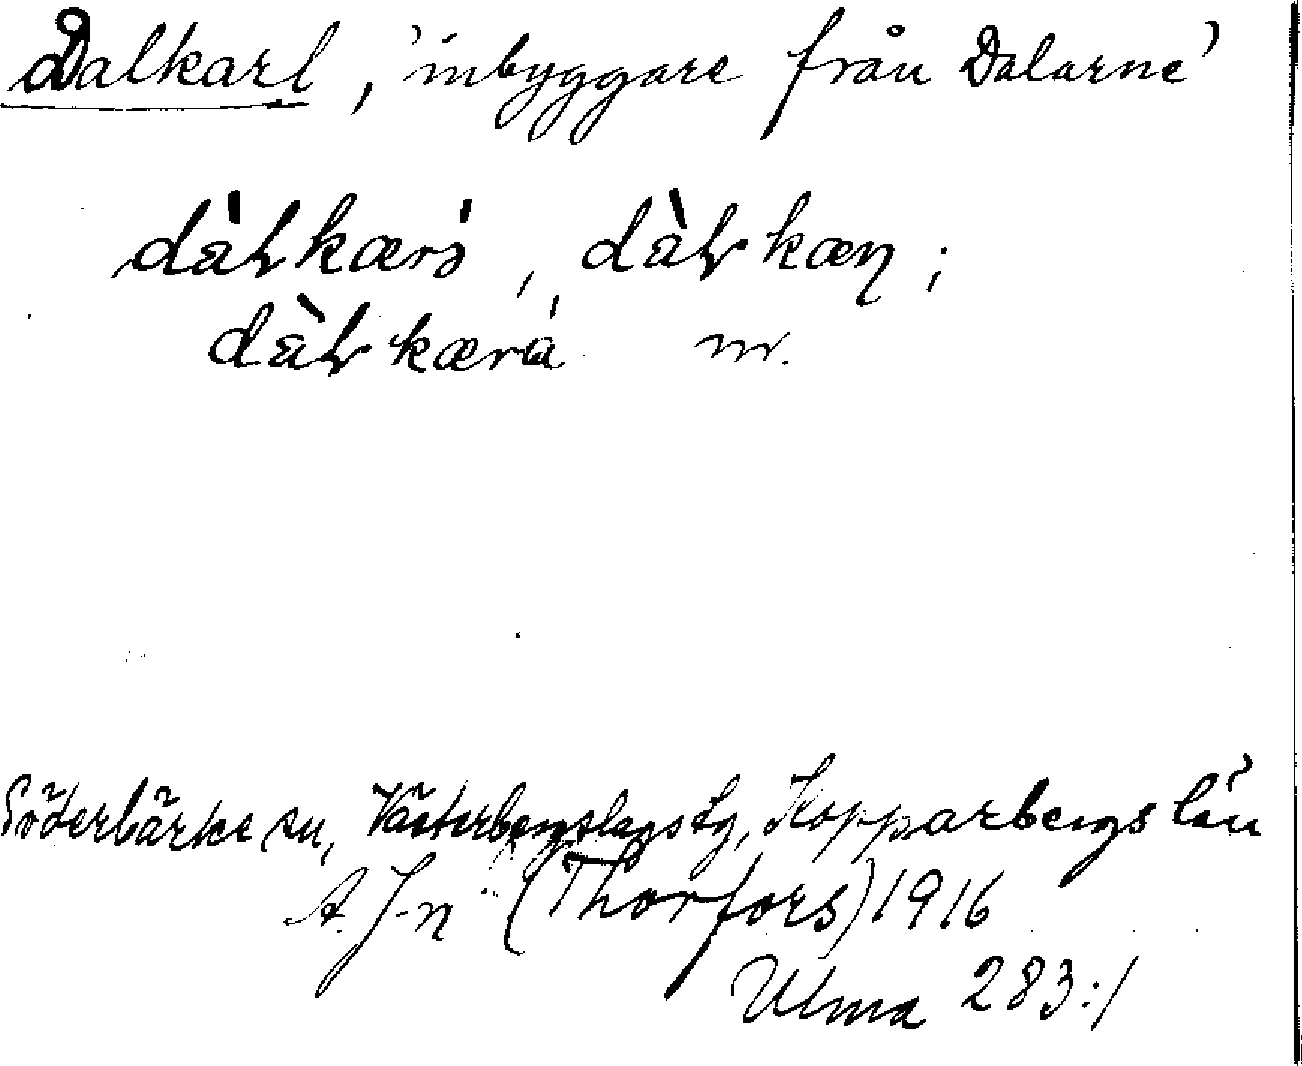 Dalkarl, 'inbyggare från Dalarne'
dàɫkærɜ̀, dàɫkæɳ;
dàɫkæra m.
Söderbärke sn, Västerbergslags tg, Kopparbergs län
A. J-n (Thorfors) 1916
Ulma 283:1